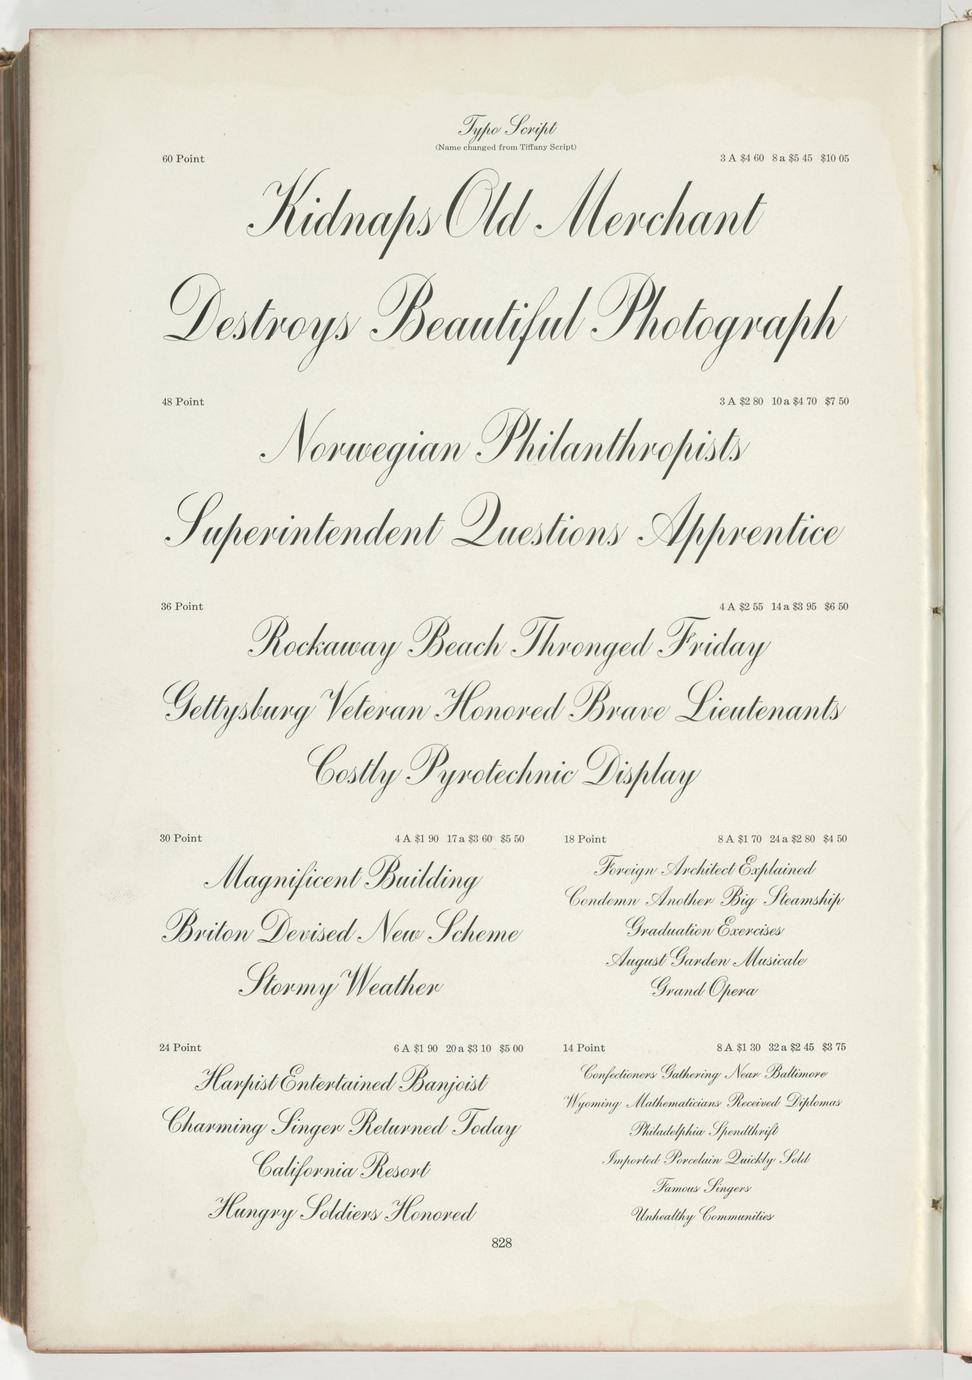 Typo Script
(Name changed from Tiffany Script)
60 Point 3 A $4 60 8 a $5 45 $10 05
Kidnaps Old Merchant
Destroys Beautiful Photograph
48 Point 3 A $2 80 10 a $4 70 $7 50
Norwegian Philanthropists
Superintendent Questions Apprentice
36 Point 4 A $2 55 14 a $3 95 $6 50
Rockaway Beach Thronged Friday
Gettysburg Veteran Honored Brave Lieutenants
Costly Pyrotechnic Display
30 Point 4 A $1 90 17 a $3 60 $5 50
Magnificent Building
Briton Devised New Scheme
Stormy Weather
18 Point 8 A $1 70 24 a $2 80 $4 50
Foreign Architect Explained
Condemn Another Big Steamship
Graduation Exercises
August Garden Musicale
Grand Opera
24 Point 6 A $1 90 20 a $3 10 $5 00
Harpist Entertained Banjoist
Charming Singer Returned Today
California Resort
Hungry Soldiers Honored
14 Point 8 A $1 30 32 a $2 45 $3 75
Confectioners Gathering Near Baltimore
Wyoming Mathematicians Received Diplomas
Philadelphia Spendthrift
Imported Porcelain Quickly Sold
Famous Singers
Unhealthy Communities
828